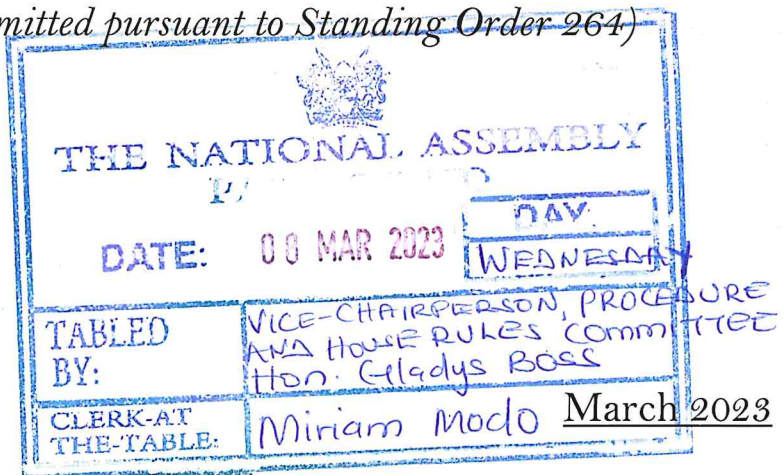 mitted pursuant to Standing Order 264)
THE NATIONAL ASSEMBLY
DAY:
DATE: 08 MAR 2023 WEDNESDAY
TABLED BY:
VICE-CHAIRPERSON, PROCEDURE
AND HOUSE RULES COMMITTEE
Hon. Gladys Boss
CLERK-AT
THE-TABLE:
Miriam Modo
March 2023